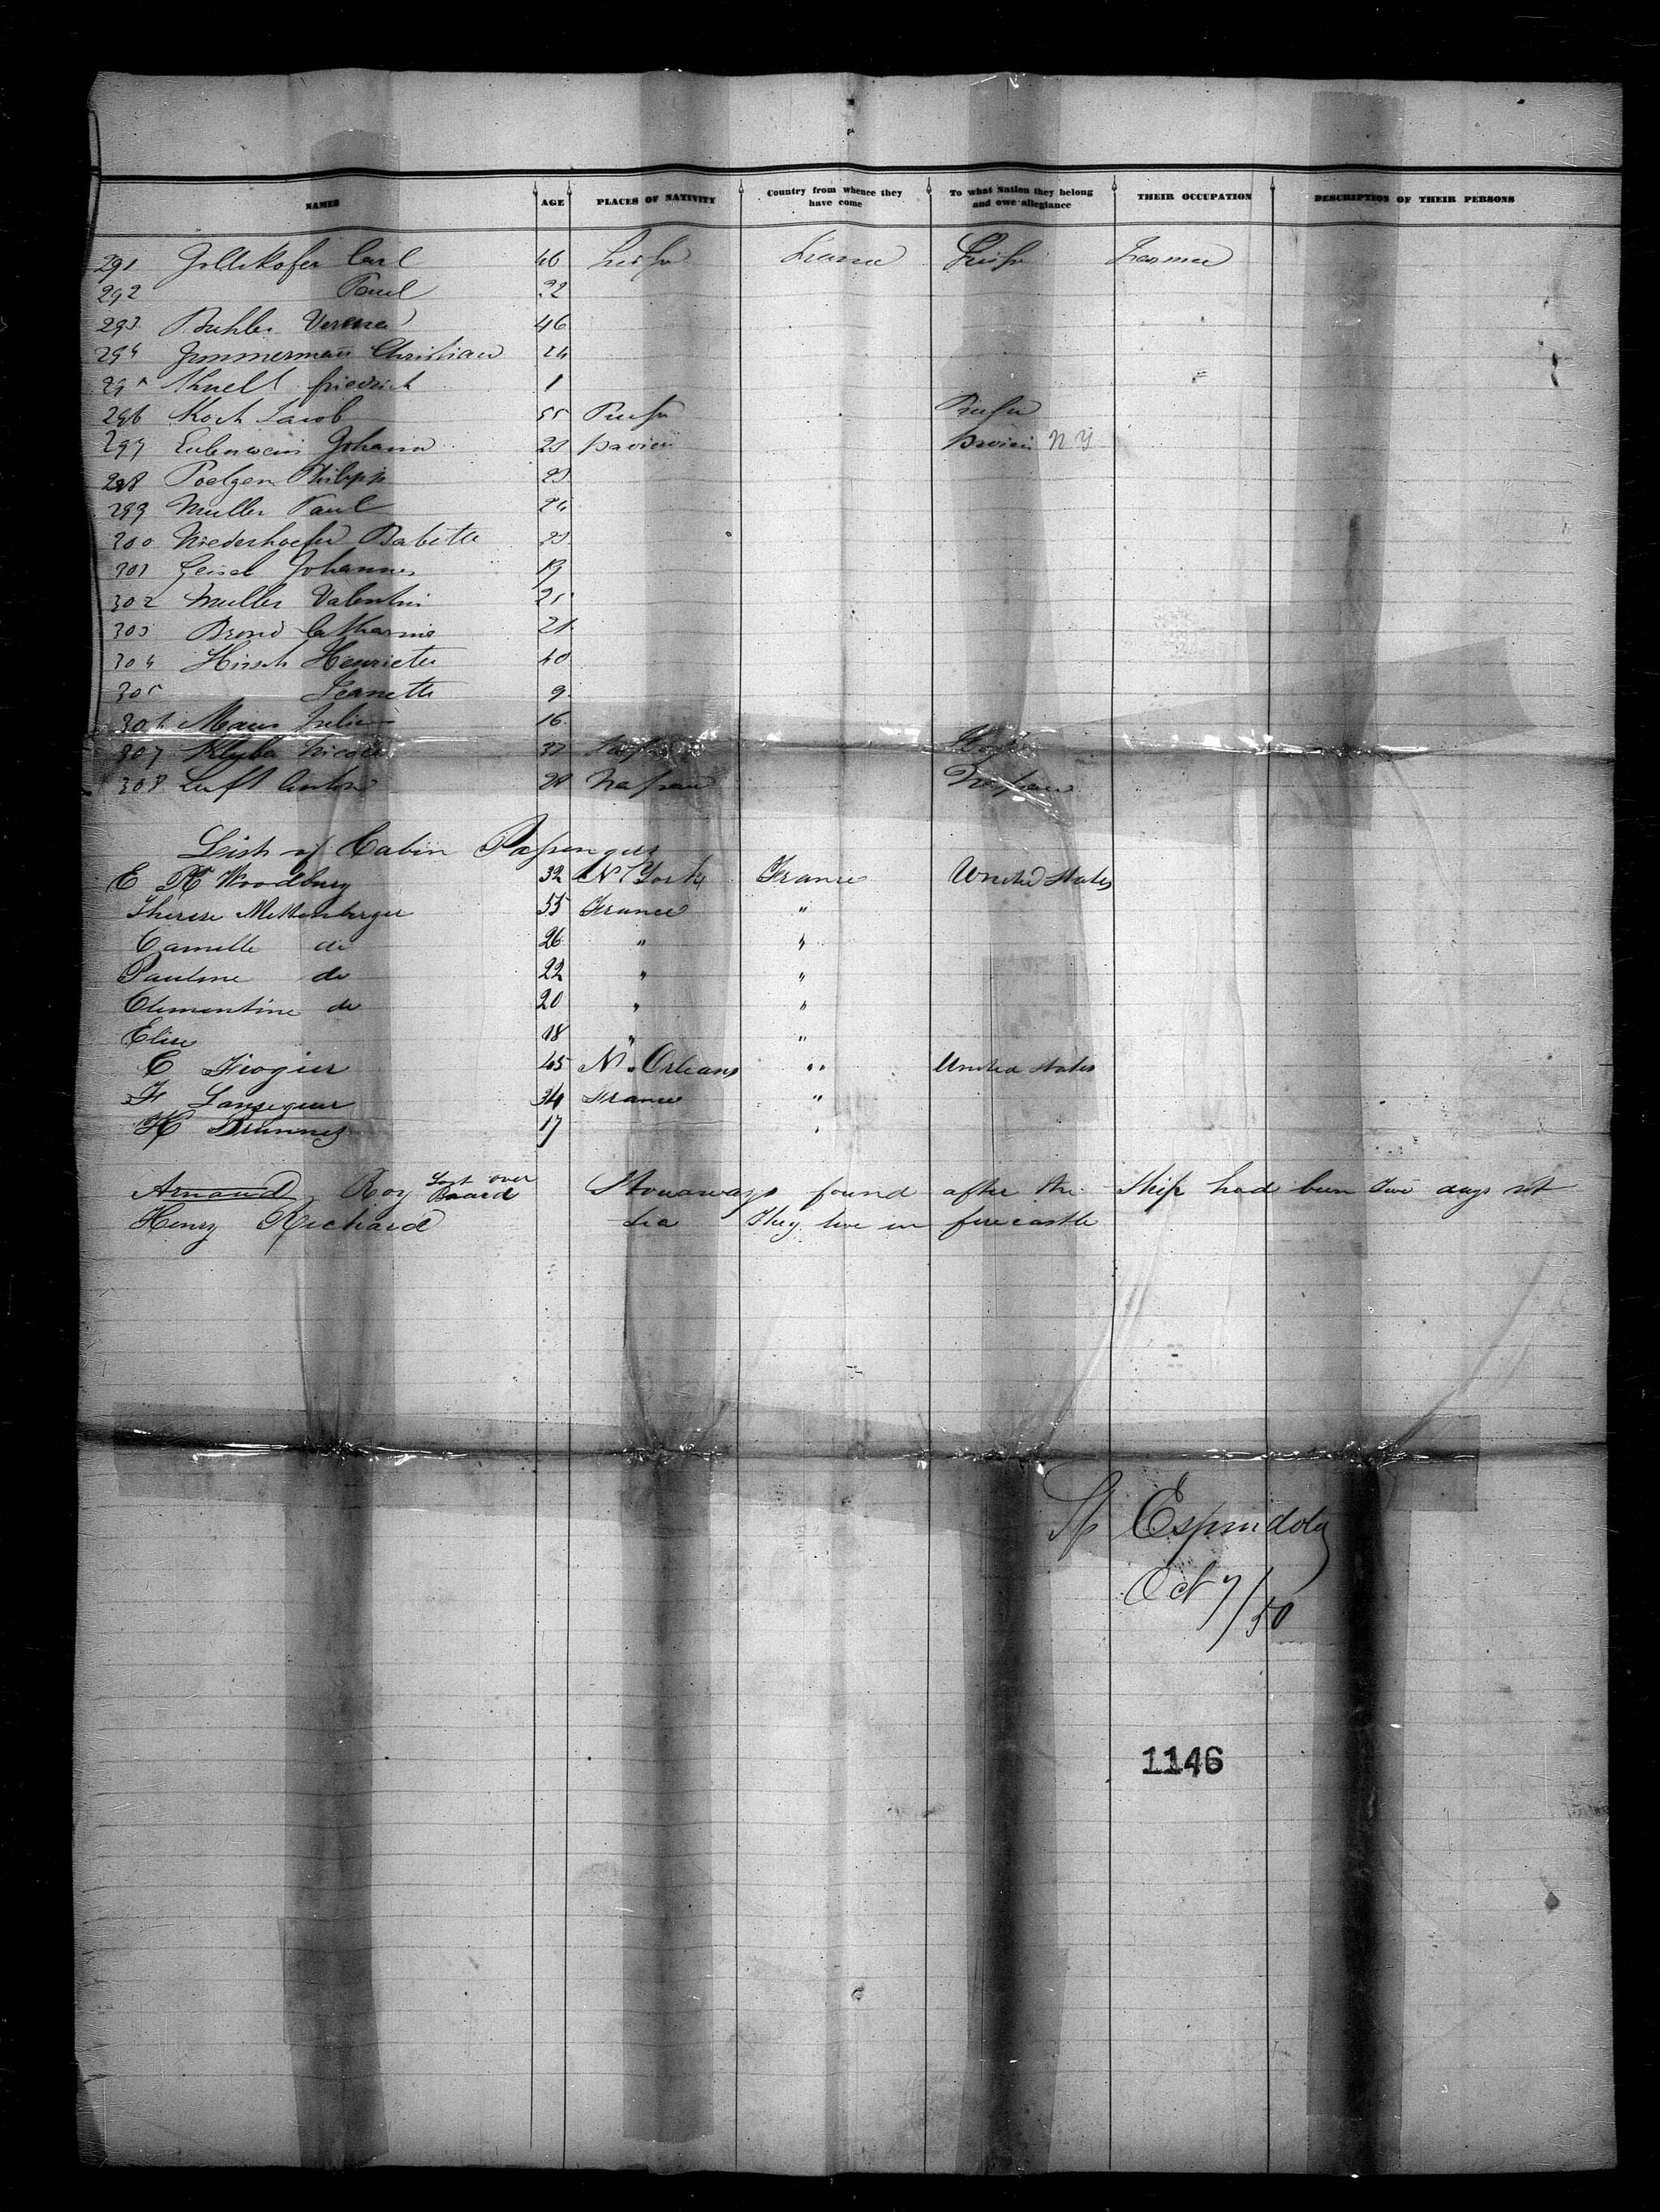 NAMES AGE PLACES OF NATIVITY Country from whence they have come To what Nation they belong and owe allegiance THEIR OCCUPATION DESCRIPTION OF THEIR PERSONS
291 Zollikofer Carl 46 Farmer
292 Paul 22
293 Buhler Verena 46
294 Zimmermann Christian 24
295 Knell friedrich 1
296 Koch Jacob 55
297 Johann 23 N Y
298 Poelgen Philipp 23
299 Muller Paul 24
300 Niederhoefer Babette 23
301 Geisel Johannes 19
302 Muller Valentin 25
303 Catharine 21
304 Hirsch Henriette 40
305 Jeanette 9
306 16
307 37
308 Luft Anton 28 Nassau Nassau
List of Cabin Passengers
E K Woodbury 32 N York France United States
Therese Mettenberger 55 France "
Camille do 26 " "
Pauline do 22 " "
Clementine do 20 " "
Elise 18 " "
C 45 N. Orleans " United States
F 34 France "
H 17 "
Arnaud Roy Lost over Board Stowaways found after the Ship had been two days at
Henry Richard Sea They live in forecastle
Sp Espindola
Oct 7/50
1146